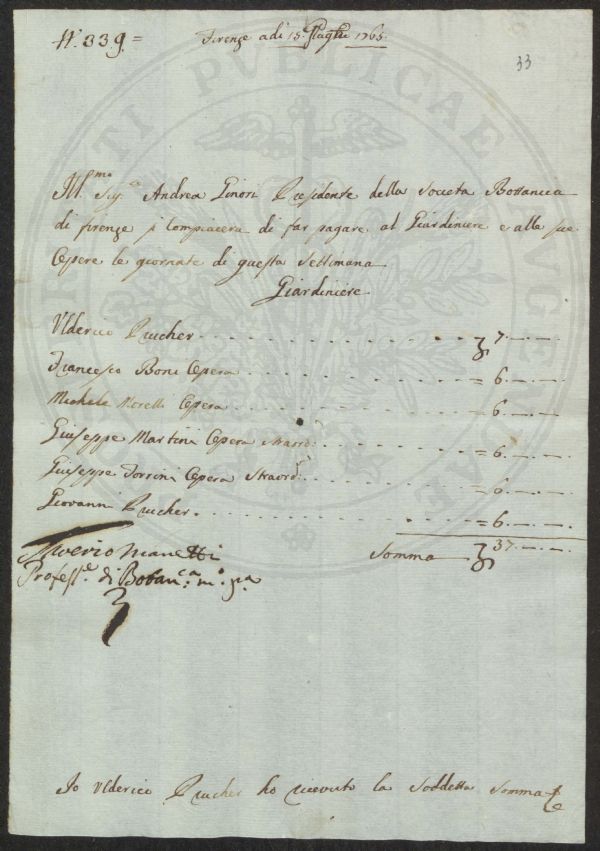 N.° 339 =
Firenze adi 15. Luglio 1765.
33
Ill.mo Sig.e Andrea Ginori Presidente della Societa Bottanica
di firenze si Compiacera di far pagare al Giardiniere e alle sue
Opere le giornate di questa Settimana
Giardiniere
Ulderico Prucher . . . . . . . . . . . . 7. — . —
Francesco Boni Opera . . . . . . . . . . = 6. — . —
Michele Morelli Opera . . . . . . . . . . = 6. — . —
Giuseppe Martini Opera straord: . . . . . . = 6. — . —
Giuseppe Torrini Opera Straord: . . . . . . = 6. — . —
Giovanni Prucher . . . . . . . . . . . . = 6. — . —
Somma 37. — . —
Saverio Manetti
Profess.e di Botan.ca m.o pa
Io Ulderico Prucher ho ricevuto la Soddetta Somma
PUBLICAE